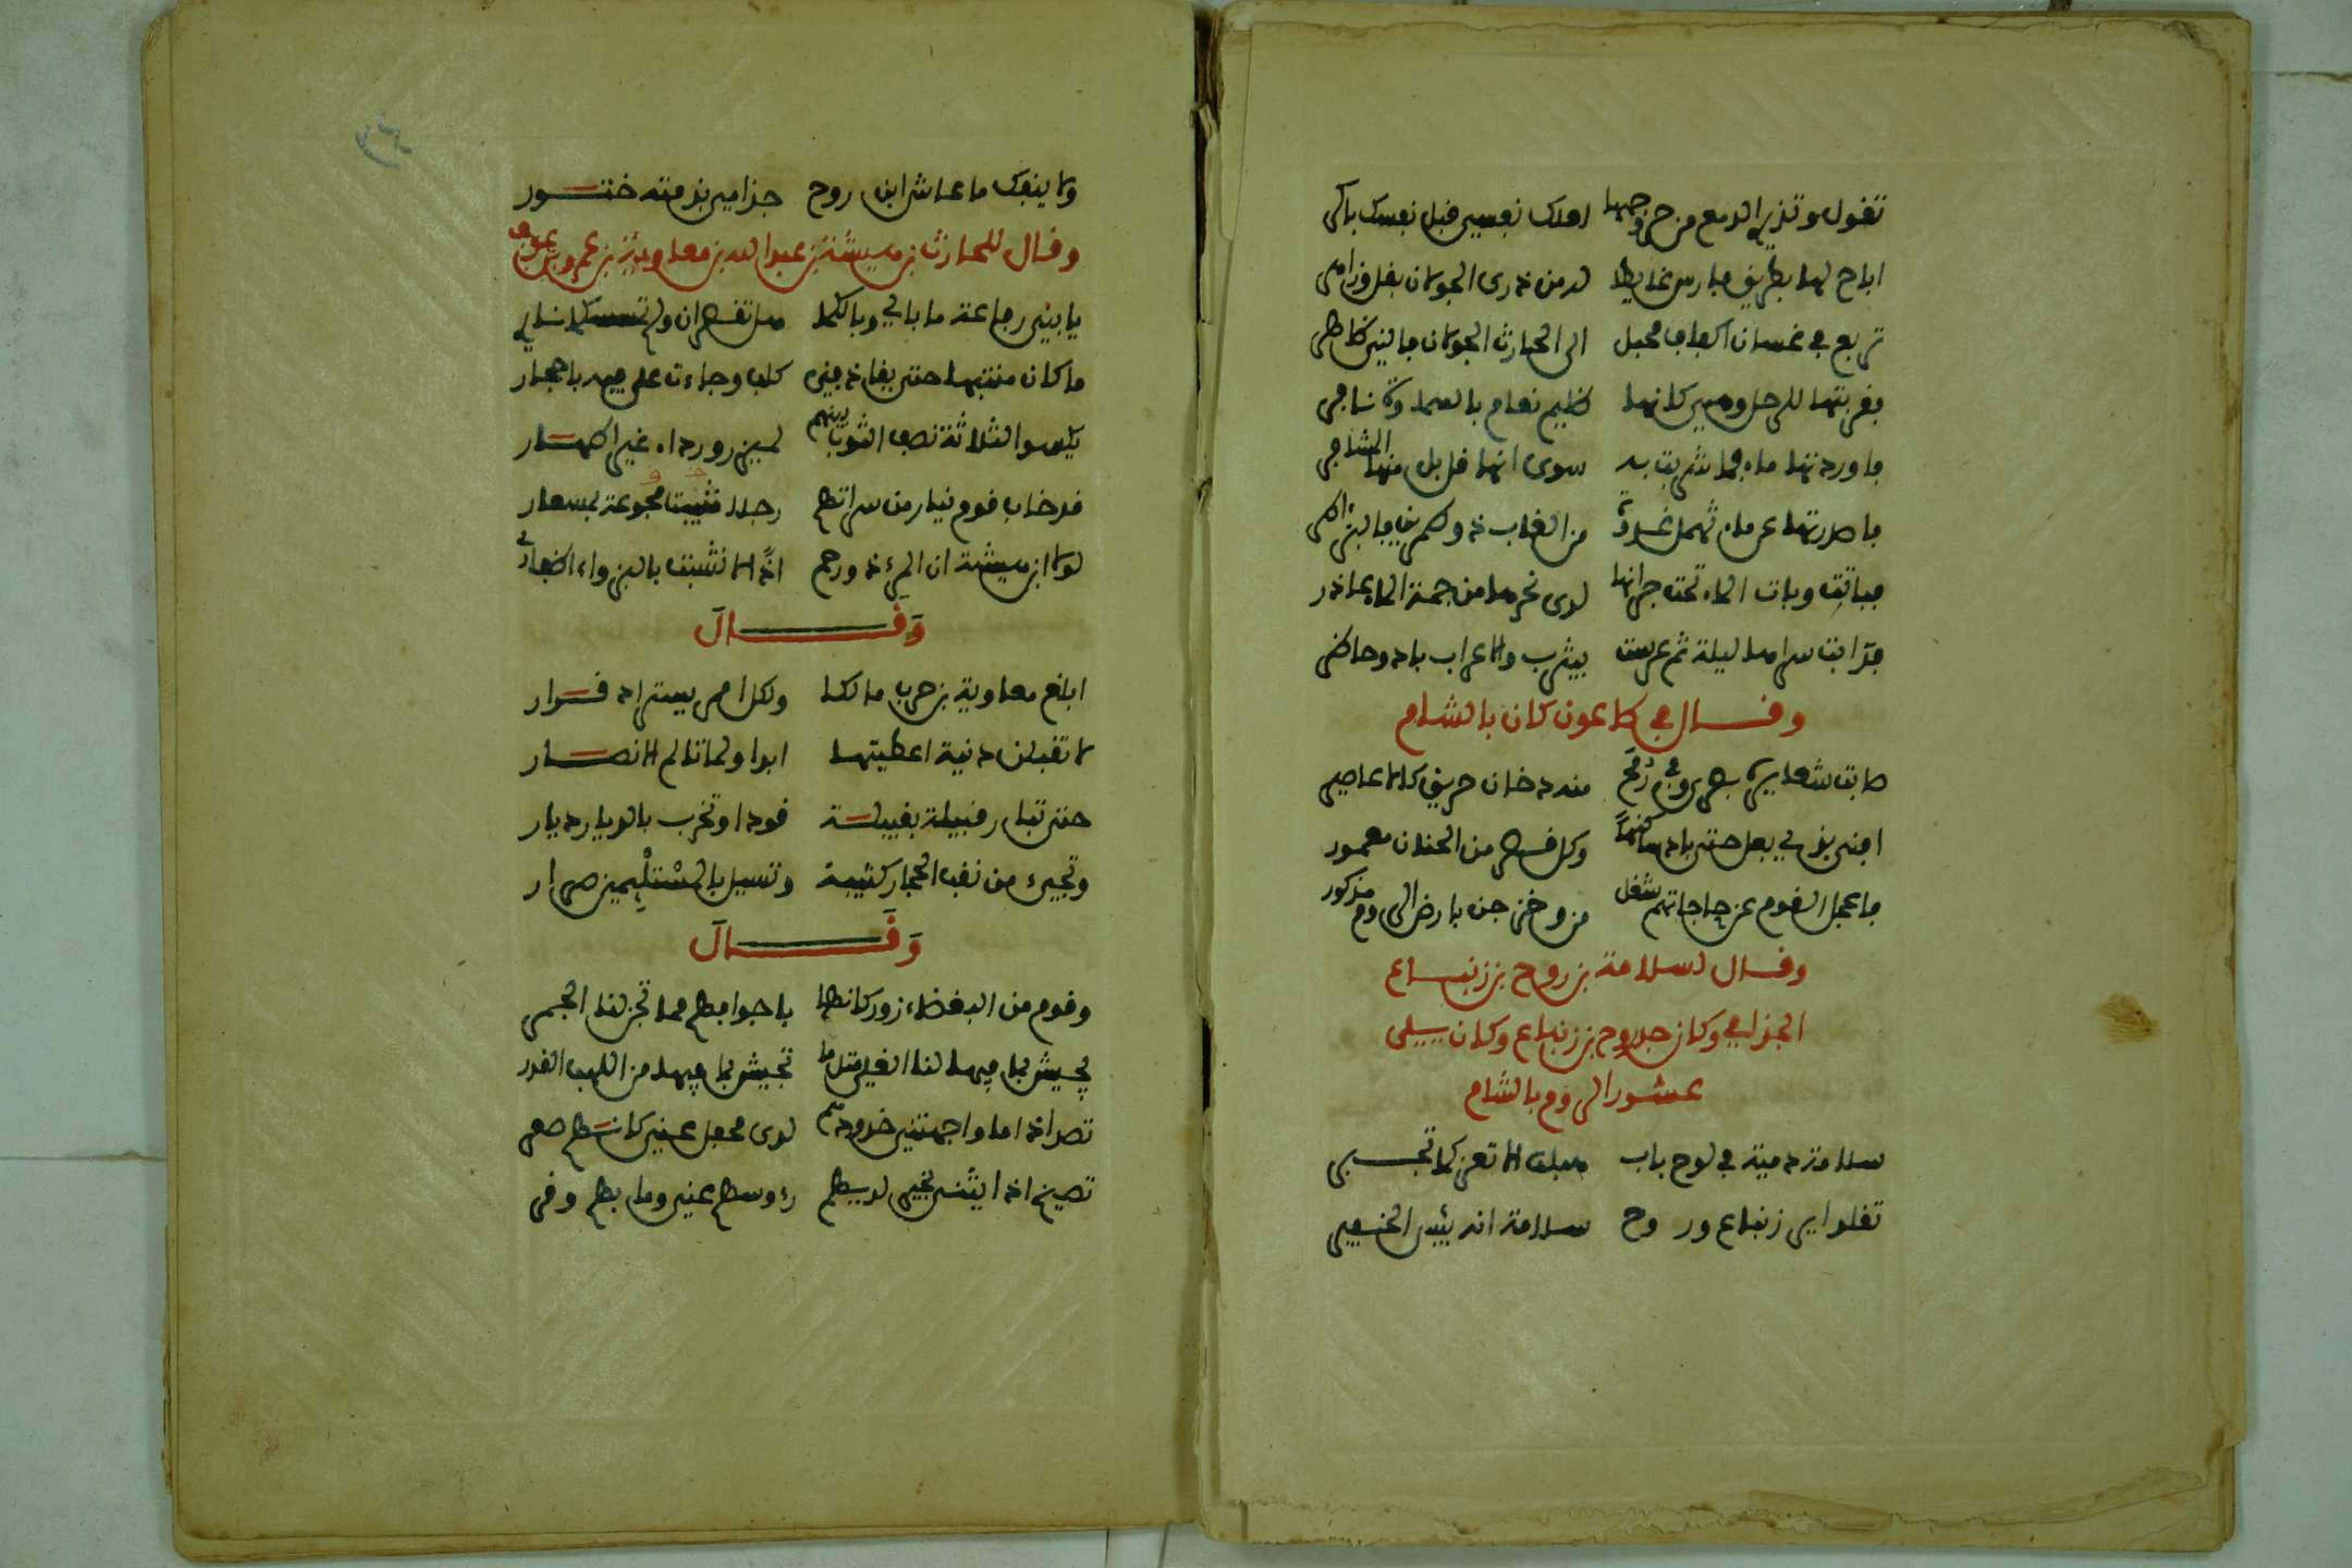 تقول وتذري الدمع من حر وجهها لعلك نفسي قبل نفسك باكر
اباح لها بطريق فارس غايطا له من ذرى الجولان بقل وزاهر
تربع في غسان اكناف محبل الى الحارث الجولان فالنى ظاهر
فقربتها للرحل وهي كانها ظليم نعام بالسماوة نافر
فاوردتها ماء فما شربت به سوى انها قد بل منها المشافر
فاصدرتها عن ماء ثهمل غدوة من الغاب ذو طمرين فالبز اطر
فباتت وبات الماء تحت جرانها لدى نحرها من جمة الماء عاذر
فدابت سراها ليلة ثم عرست بيثرب والاعراب باد وحاضر
وقال في طاعون كان بالشام
صابت شعايره بصرى وفي رمح منه دخان حريق كالاعاصير
افنى بذي بعل حتى باد ساكنها وكل قصر من الخمان معمور
فاعجل القوم عن حاجاتهم شغل من وخز جن بارض الروم مذكور
وقال لسلامة بن روح بن زنباع
الجذامي وكان جده روح بن زنباع وكان يلي
عشور الروم بالشام
سلامة دمية في لوح باب هبلت الا تعز كما تجير
تقلد اير زنباع وروح سلامة انه بئس الخفير
ولا ينفك ما عاش ابن روح جذامي بذمته ختور
وقال للحارث بن هيشة بن عبد الله بن معاوية بن عمرو بن عوف
يا بني رفاعة ما بالي وبالكما هل تقصران ولم تمسسكما ناري
ما كان منتهيا حتى يقاذفني كلب وجاءت على فيه باحجار
يكسوا الثلاثة نصف الثوب بينهم لميزر ورداء غير اطهار
قد خاب قوم نيار من سراتهم رجلا مجوعة بمسعار
لولا ابن هيشة ان المرء ذو رحم اذا لانشبت بالبزواء اظفاري
وقال
ابلغ معاوية بن حرب مالكا ولكل امر يستراد قرار
لا تقبلن دنية اعطيتها ابدا ولما تالم الانصار
حتى تبار قبيلة بقبيلة قودا وتخرب بالديار ديار
وتجيء من نقب الحجاز كتيبة وتسيل بالمستلئمين صرار
وقال
وقوم من البغضاء زور كانما باجوافهم مما تجن لنا الجمر
يجيش بما فيها لنا الغلي مثل ما تجيش بما فيها من اللهب القدر
تصد اذا ما واجهتني خدودهم لدى محفل عني كانهم صعر
تصيخ اذا يثنى بخير لديهم رءوسهم عني وما بهم وقر